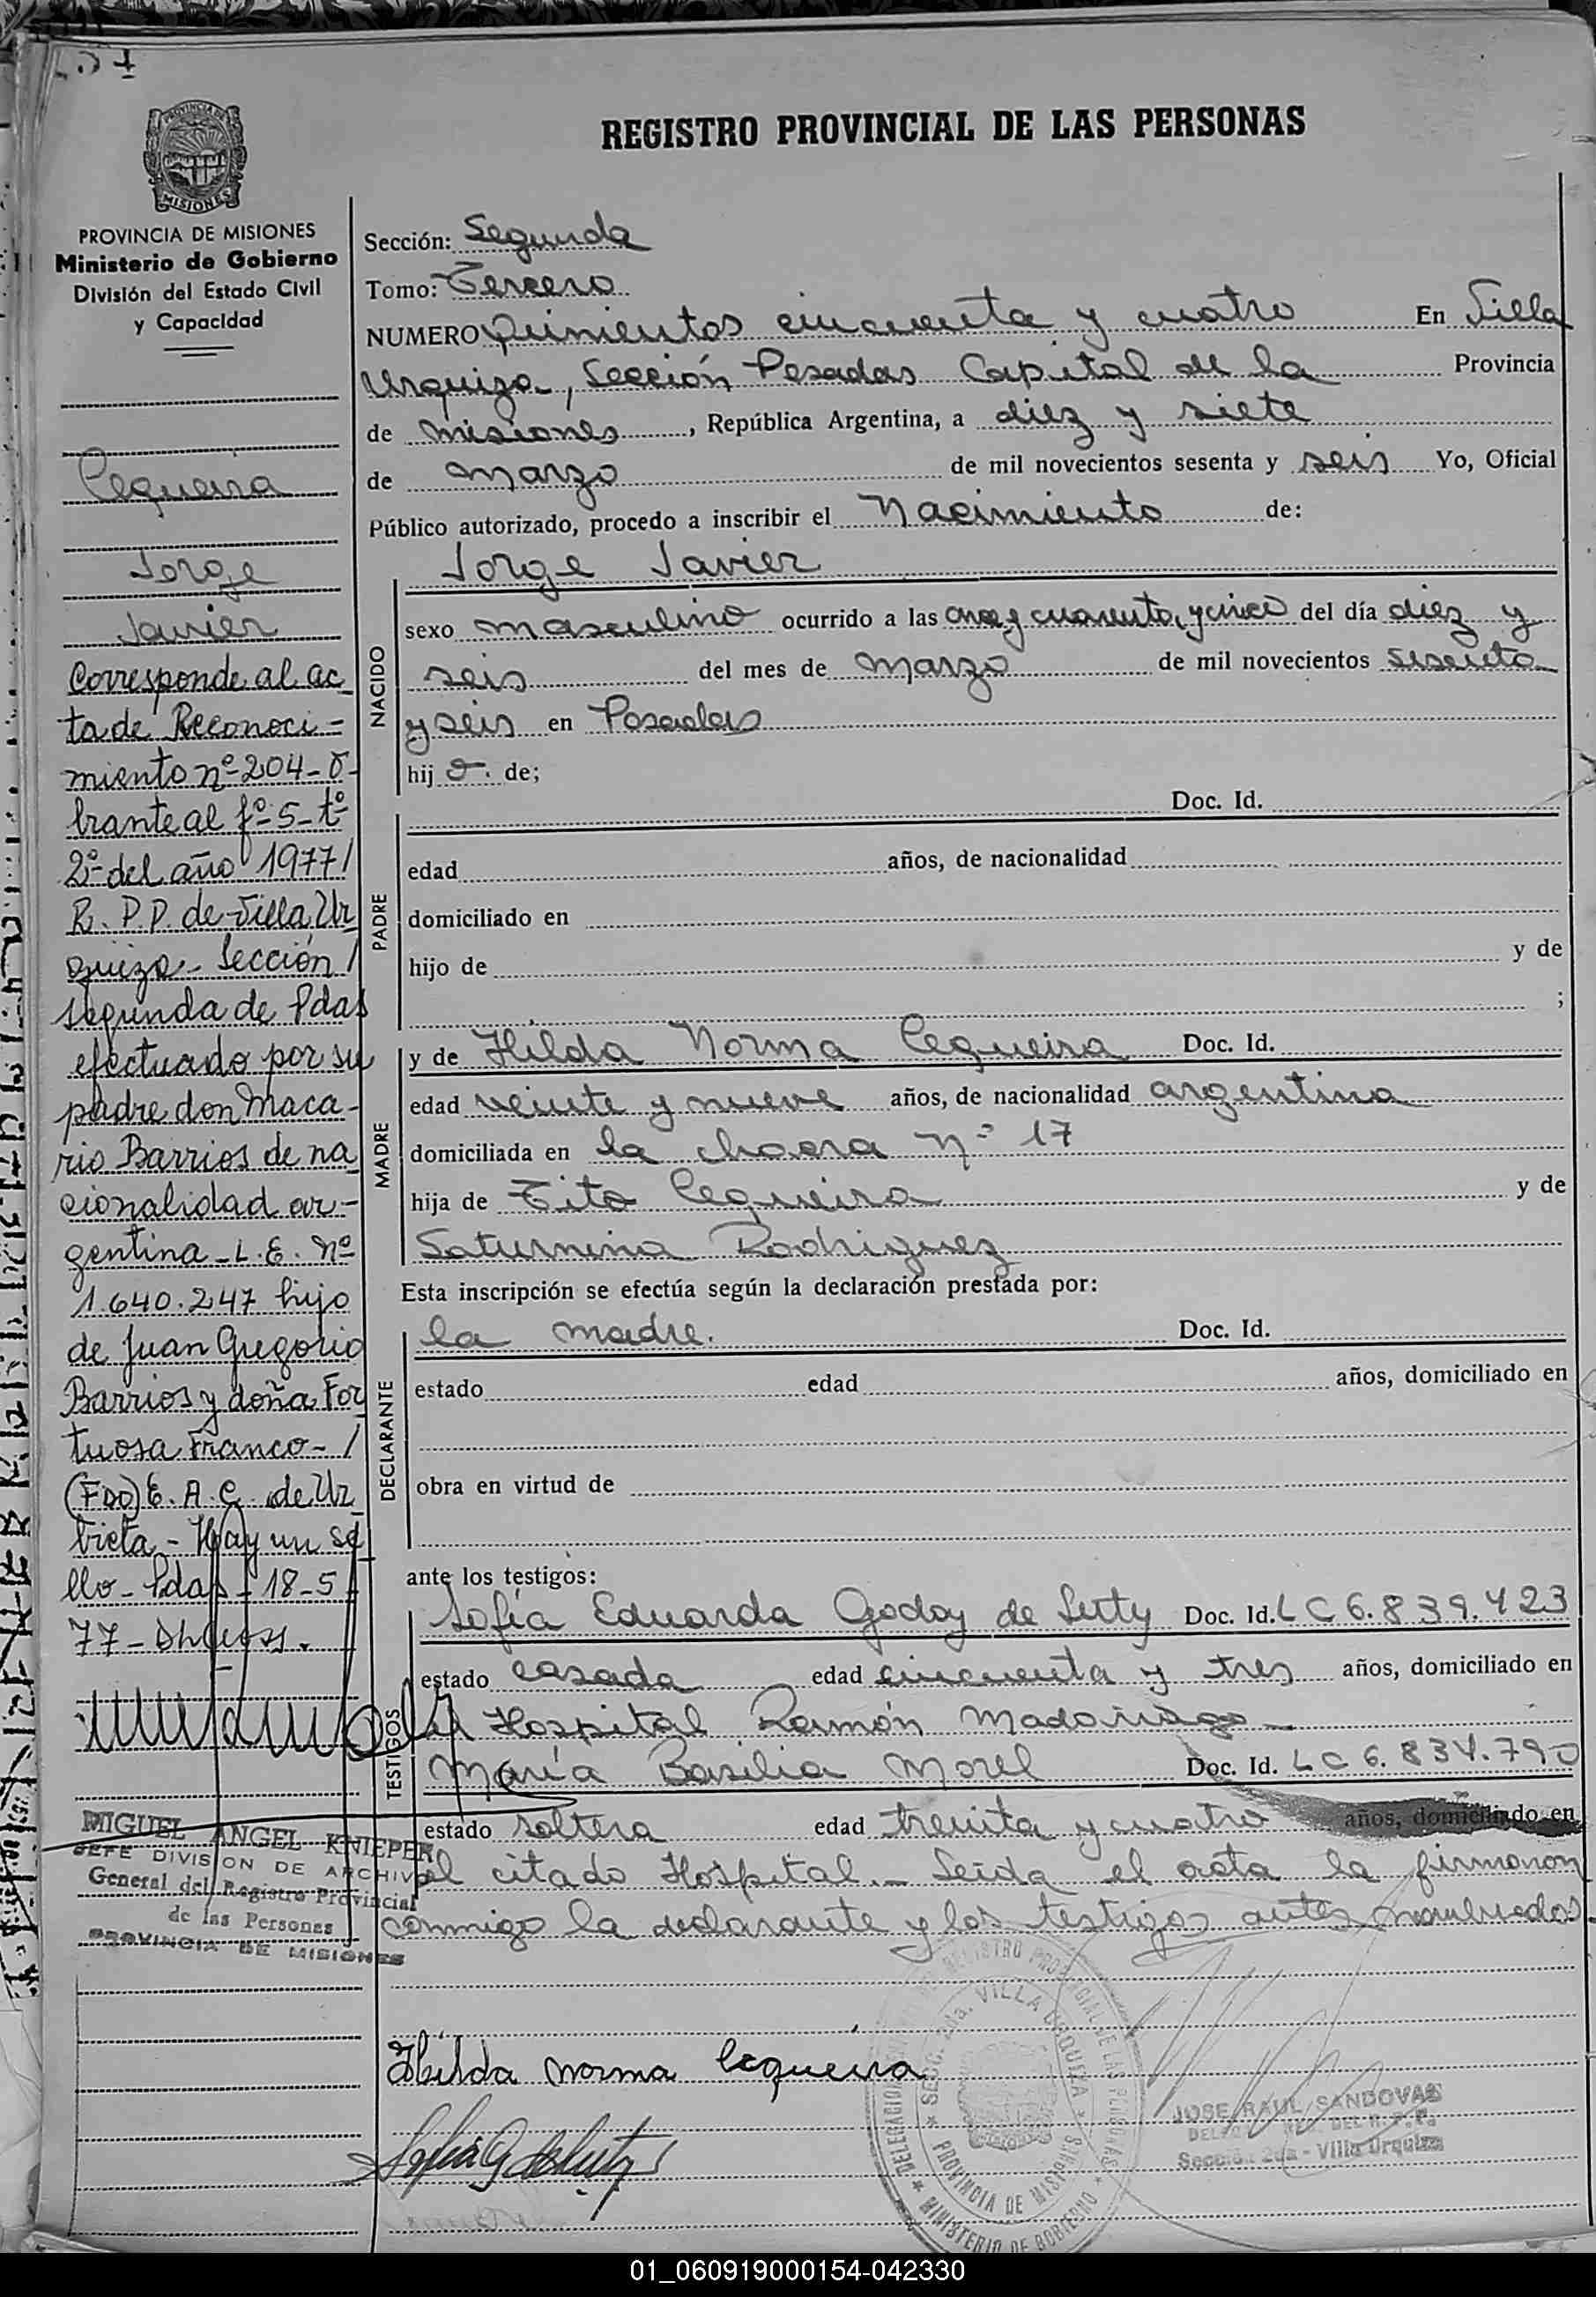 REGISTRO PROVINCIAL DE LAS PERSONAS
MISIONES
PROVINCIA DE MISIONES
Ministerio de Gobierno
División del Estado Civil
y Capacidad
Cequeira
Jorge
Javier
Corresponde al ac
ta de Reconoci=
miento nº 204-o-
brante al fº 5-tº
2º del año 1977/
R. P. P. de Villa Ur
quiza - Sección /
segunda de Pdas
efectuado por su
padre don Maca-
rio Barrios de na
cionalidad ar-
gentina - L. E. Nº
1.640.247 hijo
de Juan Gregorio
Barrios y doña For
tuosa Franco - /
(FDO) E. A. C. de Ur
bieta - Hay un se
llo - Pdas - 18-5
77 -
MIGUEL ANGEL KNIEPER
JEFE DIVISION DE ARCHIVO
General del Registro Provincial
de las Personas
PROVINCIA DE MISIONES
Sección: Segunda
Tomo: Tercero
NUMERO Quinientos cincuenta y cuatro En Villa
Urquiza, Sección Posadas Capital de la Provincia
de Misiones, República Argentina, a diez y siete
de marzo de mil novecientos sesenta y seis Yo, Oficial
Público autorizado, procedo a inscribir el Nacimiento de:
Jorge Javier
NACIDO
sexo masculino ocurrido a las once y cuarenta y cinco del día diez y
seis del mes de marzo de mil novecientos sesenta
y seis en Posadas
hij o. de;
PADRE
Doc. Id.
edad años, de nacionalidad
domiciliado en
hijo de y de
;
MADRE
y de Hilda Norma Cequeira Doc. Id.
edad veinte y nueve años, de nacionalidad argentina
domiciliada en la chacra Nº 17
hija de Tito Cequeira y de
Saturnina Rodriguez
Esta inscripción se efectúa según la declaración prestada por:
DECLARANTE
la madre. Doc. Id.
estado edad años, domiciliado en
obra en virtud de
ante los testigos:
TESTIGOS
Sofía Eduarda Godoy de Luty Doc. Id. LC 6.839.423
estado casada edad cincuenta y tres años, domiciliado en
el Hospital Ramón Madariaga
María Basilia Morel Doc. Id. LC 6.834.790
estado soltera edad treinta y cuatro años, domiciliado en
el citado Hospital.- Leída el acta la firmaron
conmigo la declarante y los testigos antes nombrados.
Hilda norma Cequeira
DELEGACION REGISTRO PROVINCIAL DE LAS PERSONAS
SECC. 2da. VILLA URQUIZA
PROVINCIA DE MISIONES
MINISTERIO DE GOBIERNO
JOSE RAUL SANDOVAL
Sección 2da - Villa Urquiza
01_060919000154-042330